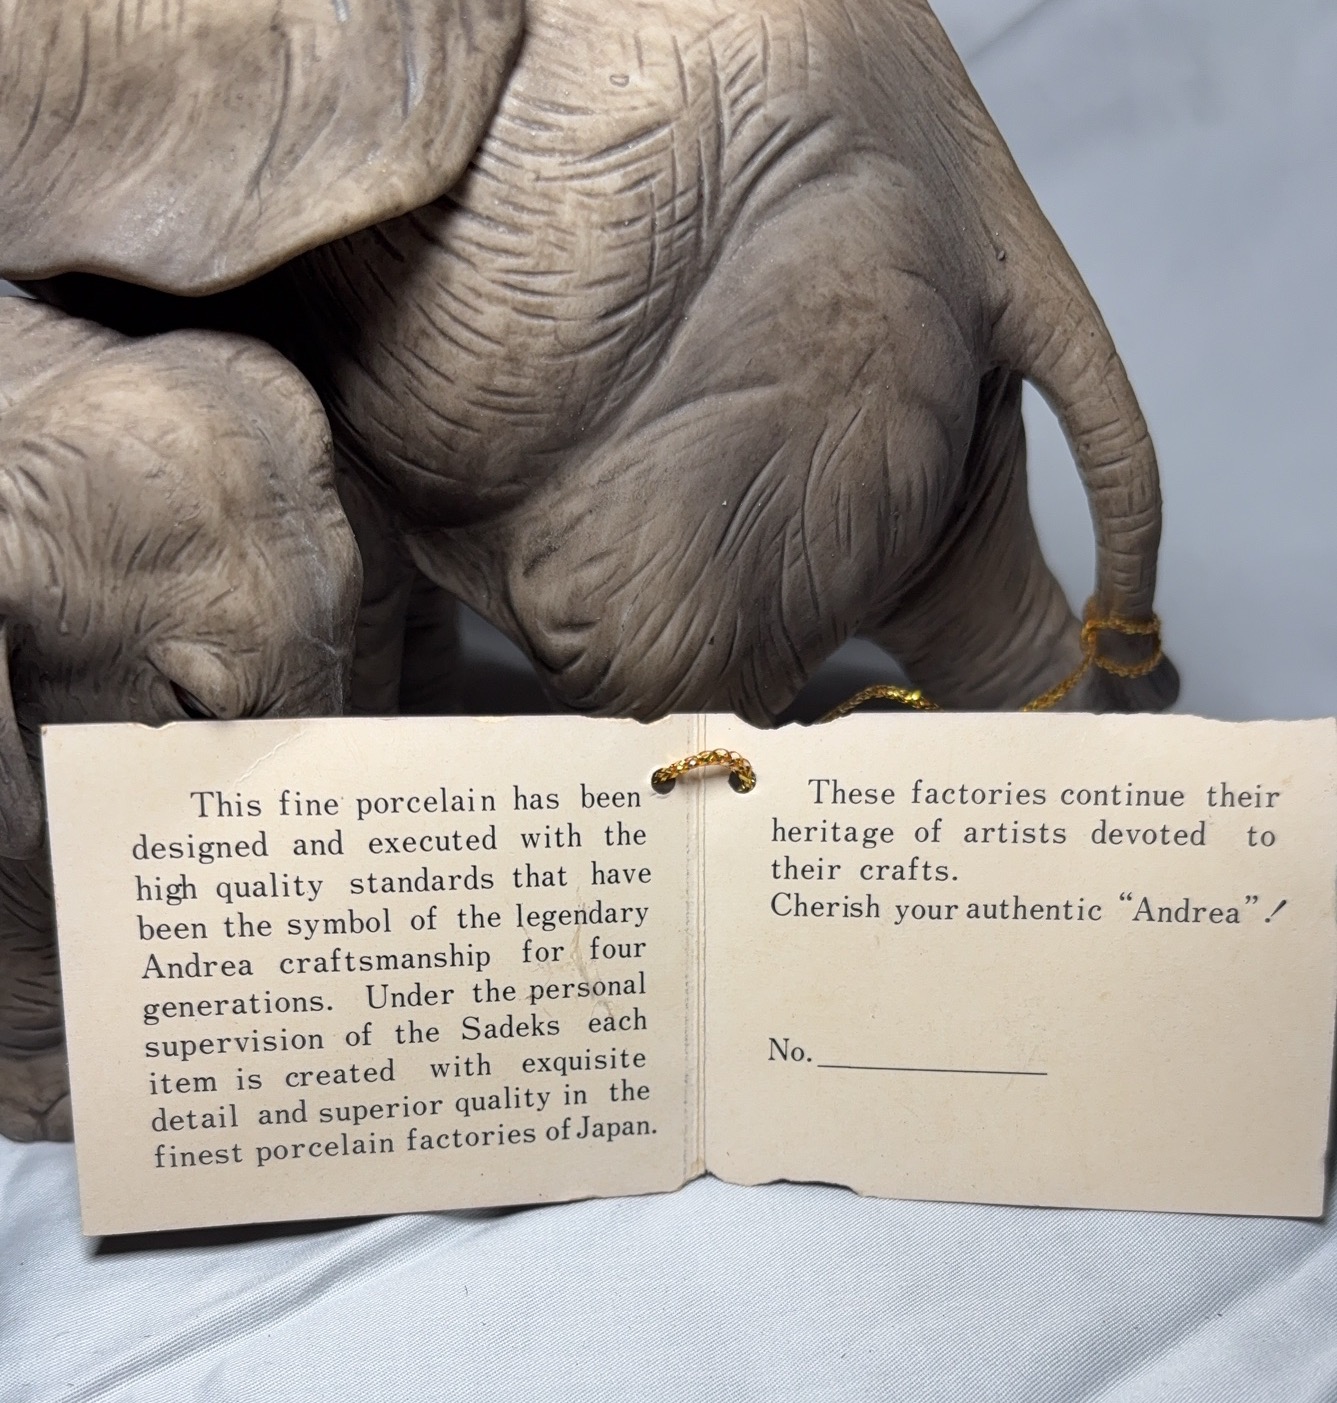 This fine porcelain has been
designed and executed with the
high quality standards that have
been the symbol of the legendary
Andrea craftsmanship for four
generations. Under the personal
supervision of the Sadeks each
item is created with exquisite
detail and superior quality in the
finest porcelain factories of Japan.
These factories continue their
heritage of artists devoted to
their crafts.
Cherish your authentic “Andrea”!
No.